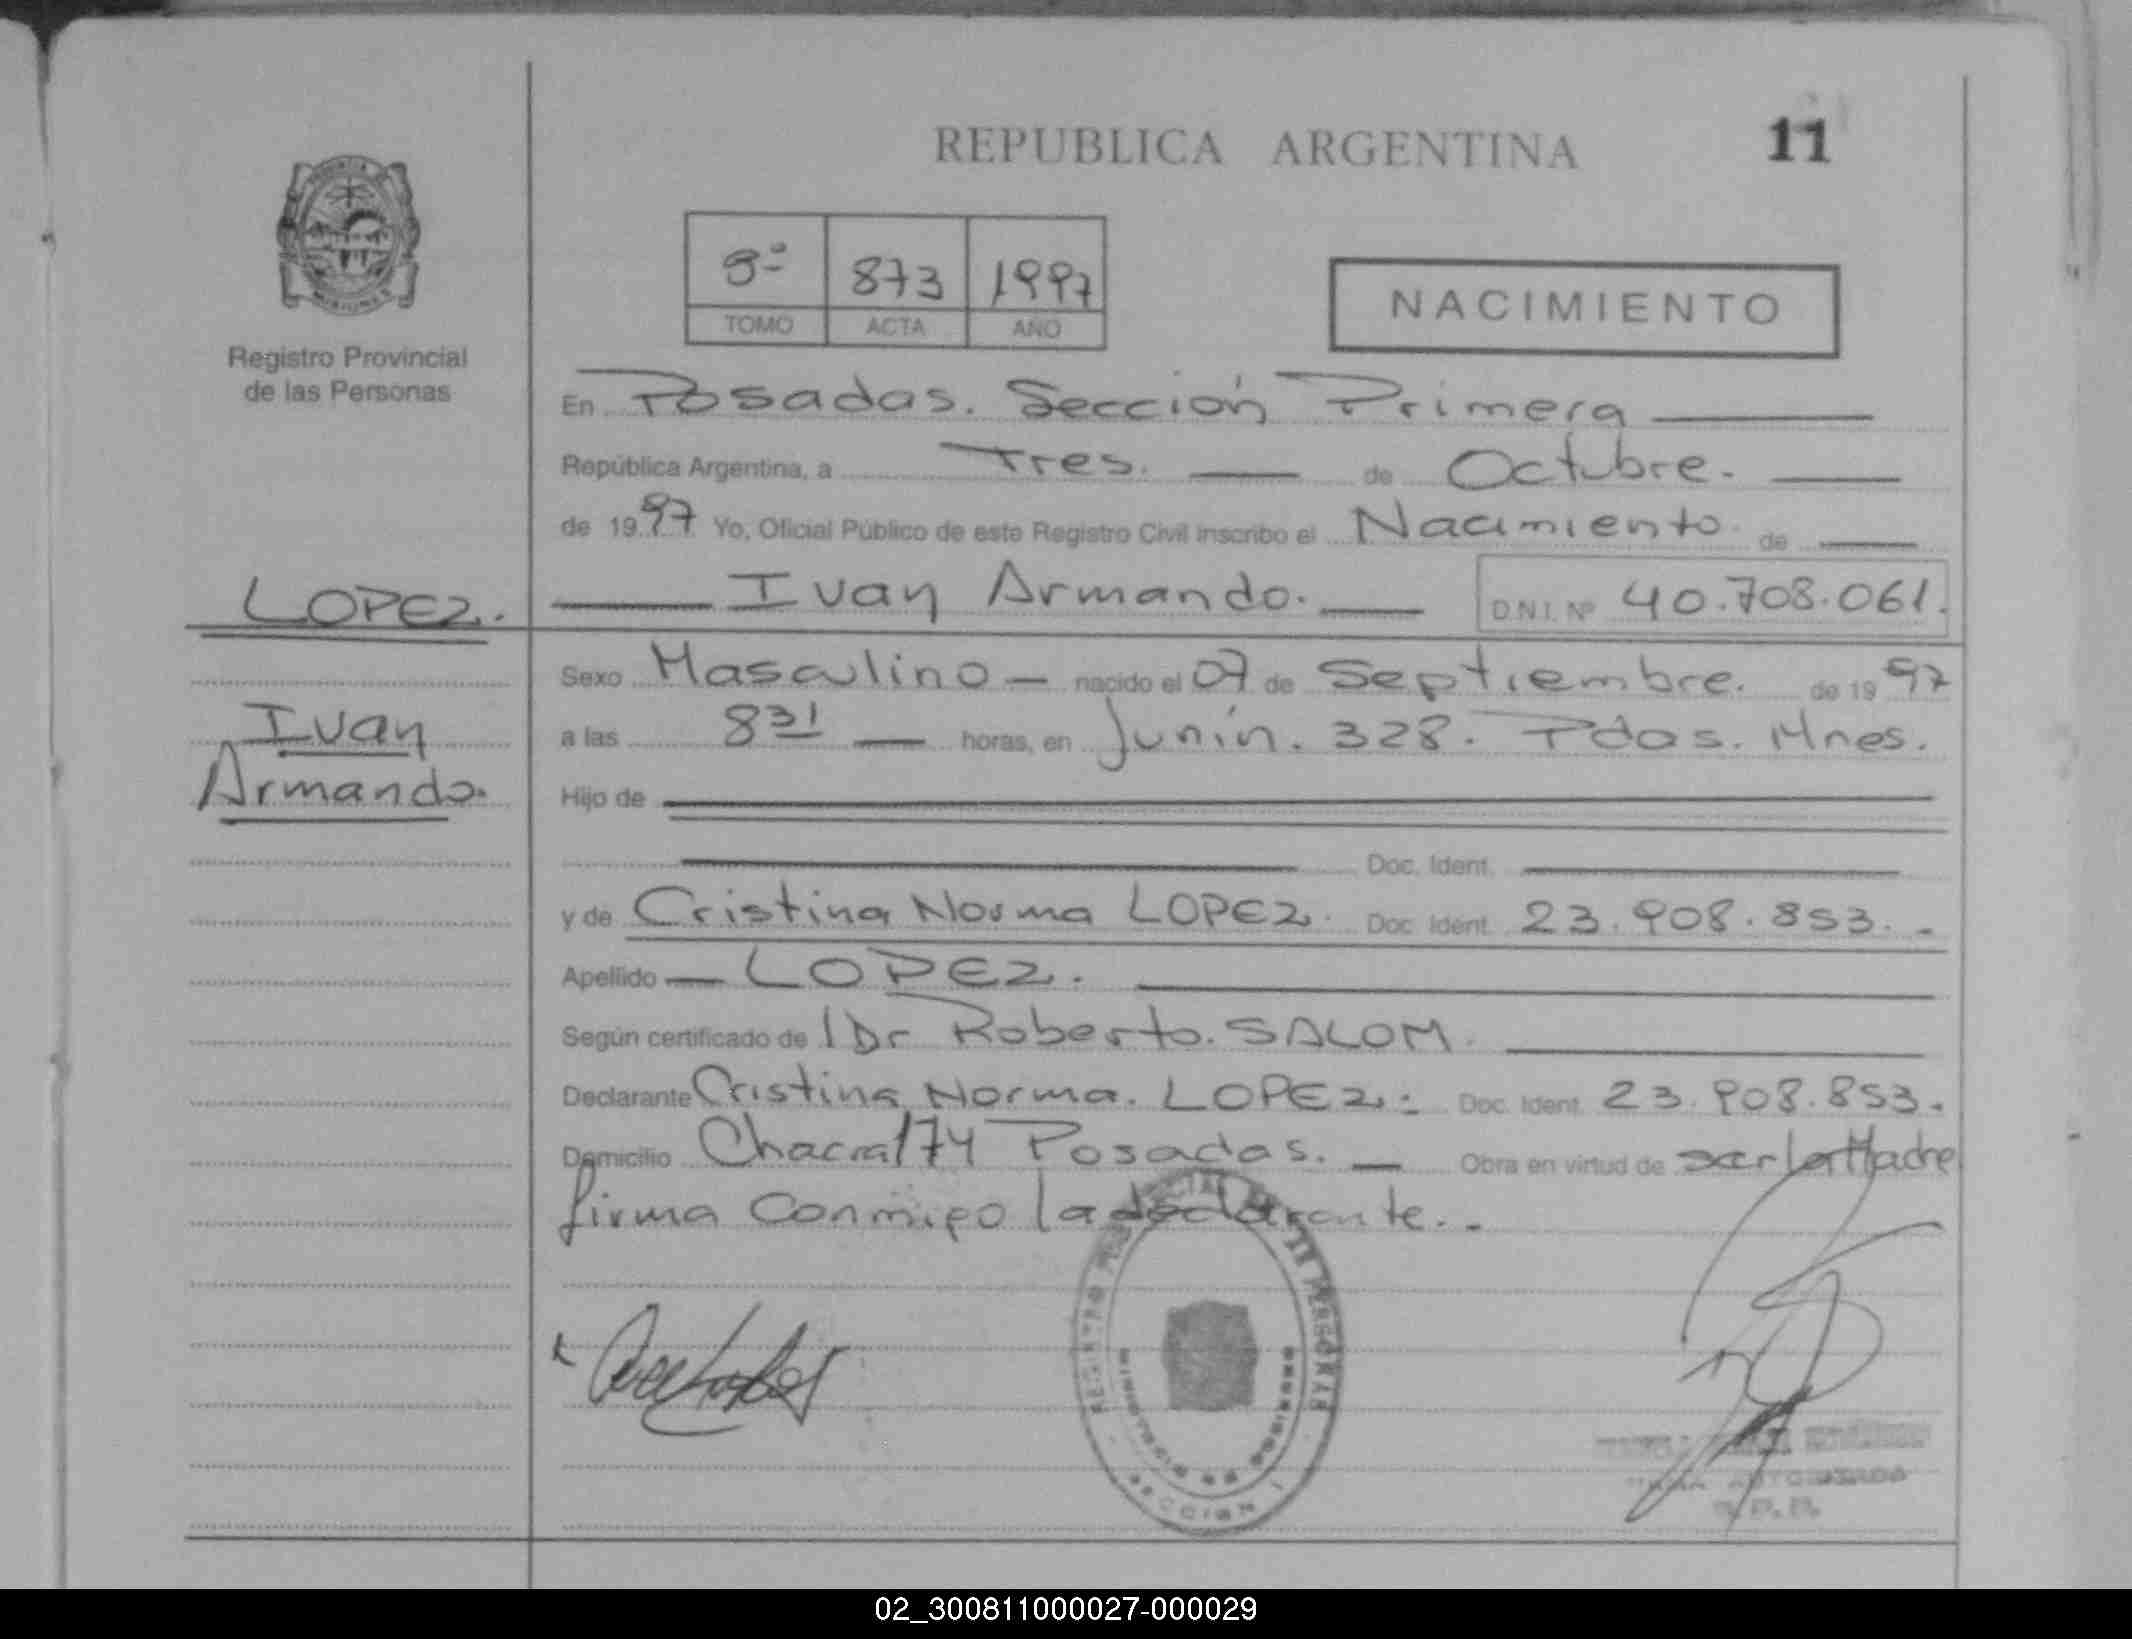 REPUBLICA ARGENTINA
11
873 1997
TOMO ACTA AÑO
NACIMIENTO
Registro Provincial
de las Personas
En Posadas. Sección Primera
República Argentina, a Tres. de Octubre.
de 1997 Yo, Oficial Público de este Registro Civil inscribo el Nacimiento de
LOPEZ.
Ivan Armando. D.N.I. Nº 40.708.061.
Sexo Masculino nacido el 07 de Septiembre. de 1997
Ivan
Armando.
a las 8 31 horas, en Junín. 328. Pdas. Mnes.
Hijo de
Doc. Ident.
y de Cristina Norma LOPEZ. Doc. Ident. 23.908.853.-
Apellido LOPEZ.
Según certificado de Dr Roberto. SALOM.
Declarante Cristina Norma. LOPEZ. Doc. Ident. 23.908.853.
Domicilio Chacra 174 Posadas. Obra en virtud de ser la Madre
firma Conmigo la declarante.-
SECCION I
02_300811000027-000029